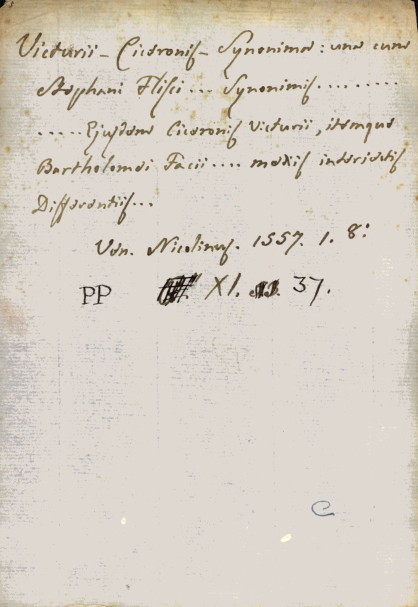 Victurii - Ciceronis - Synonima: una cum
Stephani Flisci ... Synonimis ........
..... Ejusdem Ciceronis Victurii, itemque
Bartholomei Facii .... mediis interjectis
Differentiis...
Ven. Nicolinus. 1557. 1. 8:
PP XI. 37.
C